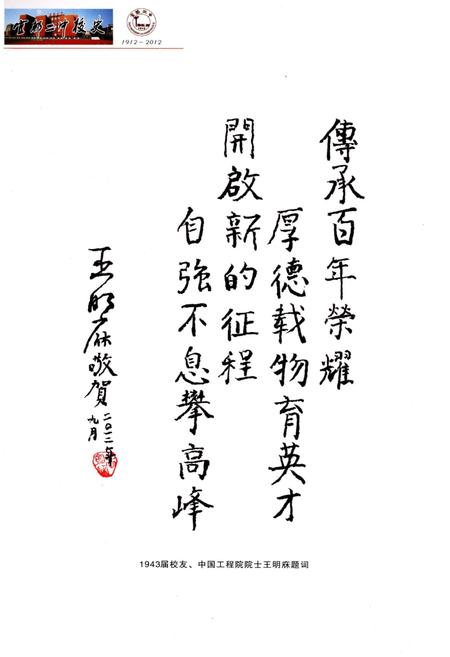 常州二中校史
1912-2012
傳承百年榮耀
厚德载物育英才
開啟新的征程
自強不息攀高峰
王明庥敬賀
二〇一二年
九月
1943届校友、中国工程院院士王明庥题词